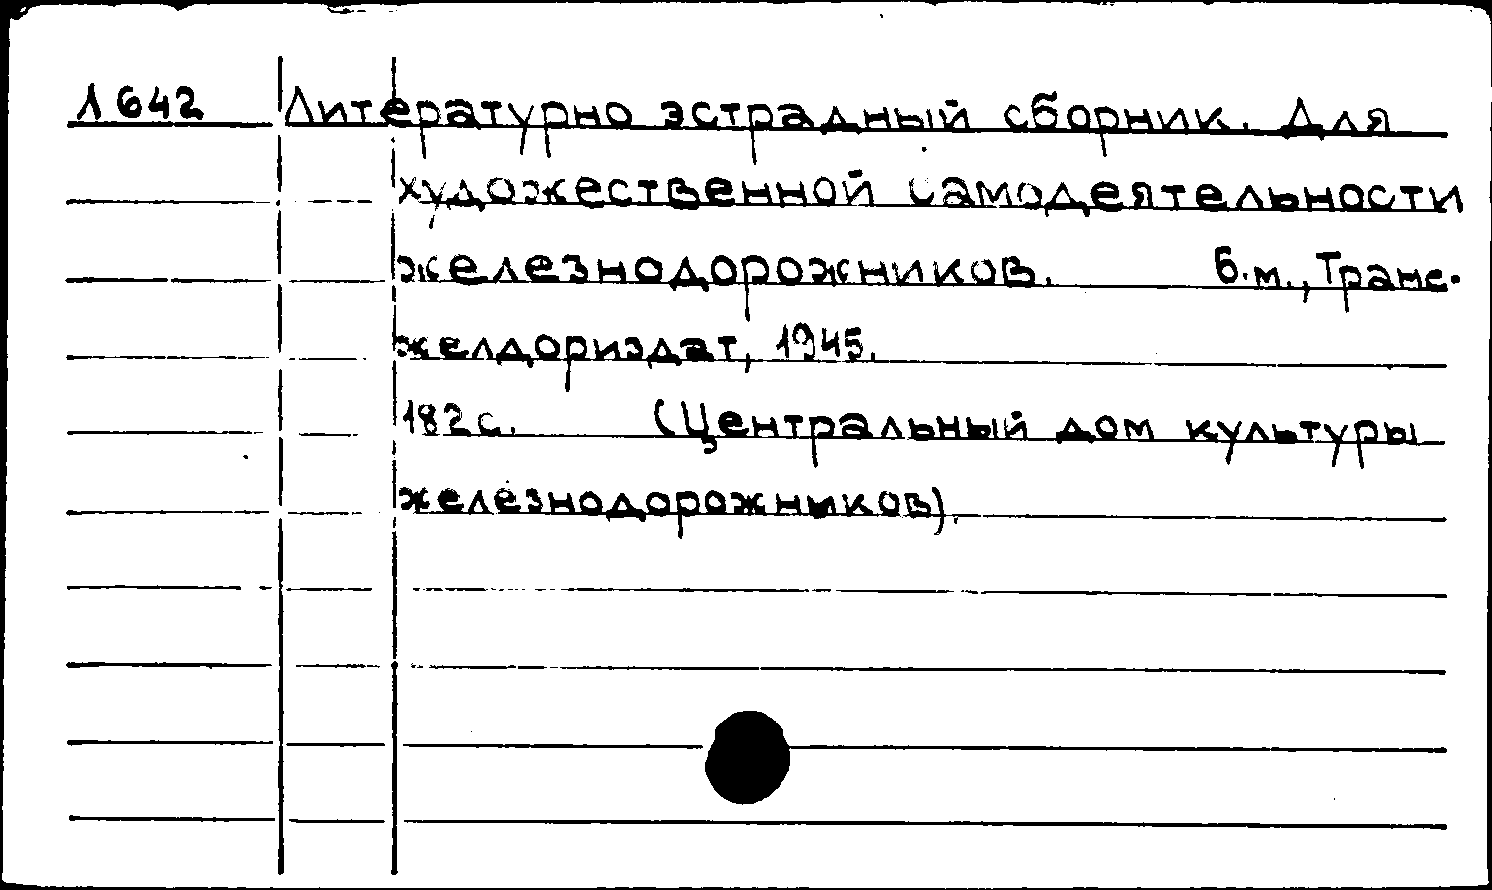 1642 Литературно эстрадный сборник. Для
художественной самодеятельности
железнодорожников. б.м., Транс-
желдориздат, 1945.
182с. (Центральный дом культуры
железнодорожников).